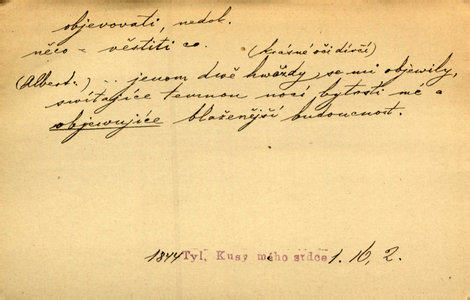 objevovati, nedok.
něco = věstiti co.
(Krásné oči dívčí)
(Albert:) .. jenom dvě hvězdy se mi objevily,
svítajíce temnou nocí bytosti mé a
objevujíce blaženější budoucnost.
1844 Tyl, Kusy mého srdce 1. 16, 2.